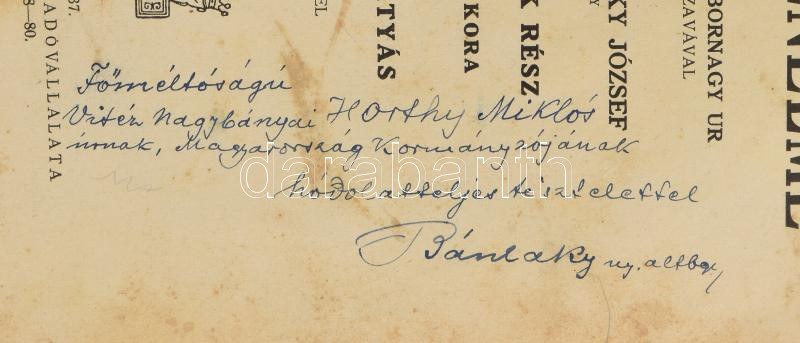 Főméltóságú
Vitéz Nagybányai Horthy Miklós
úrnak, Magyarország Kormányzójának
hódolatteljes tisztelettel
Bánlaky ny. altbgy
darabanth
NEME
BORNAGY UR
SZAVÁVAL
KY JÓZSEF
Y
K RÉSZ
KORA
TYÁS
EL
37.
ADÓVÁLLALATA
8—80.